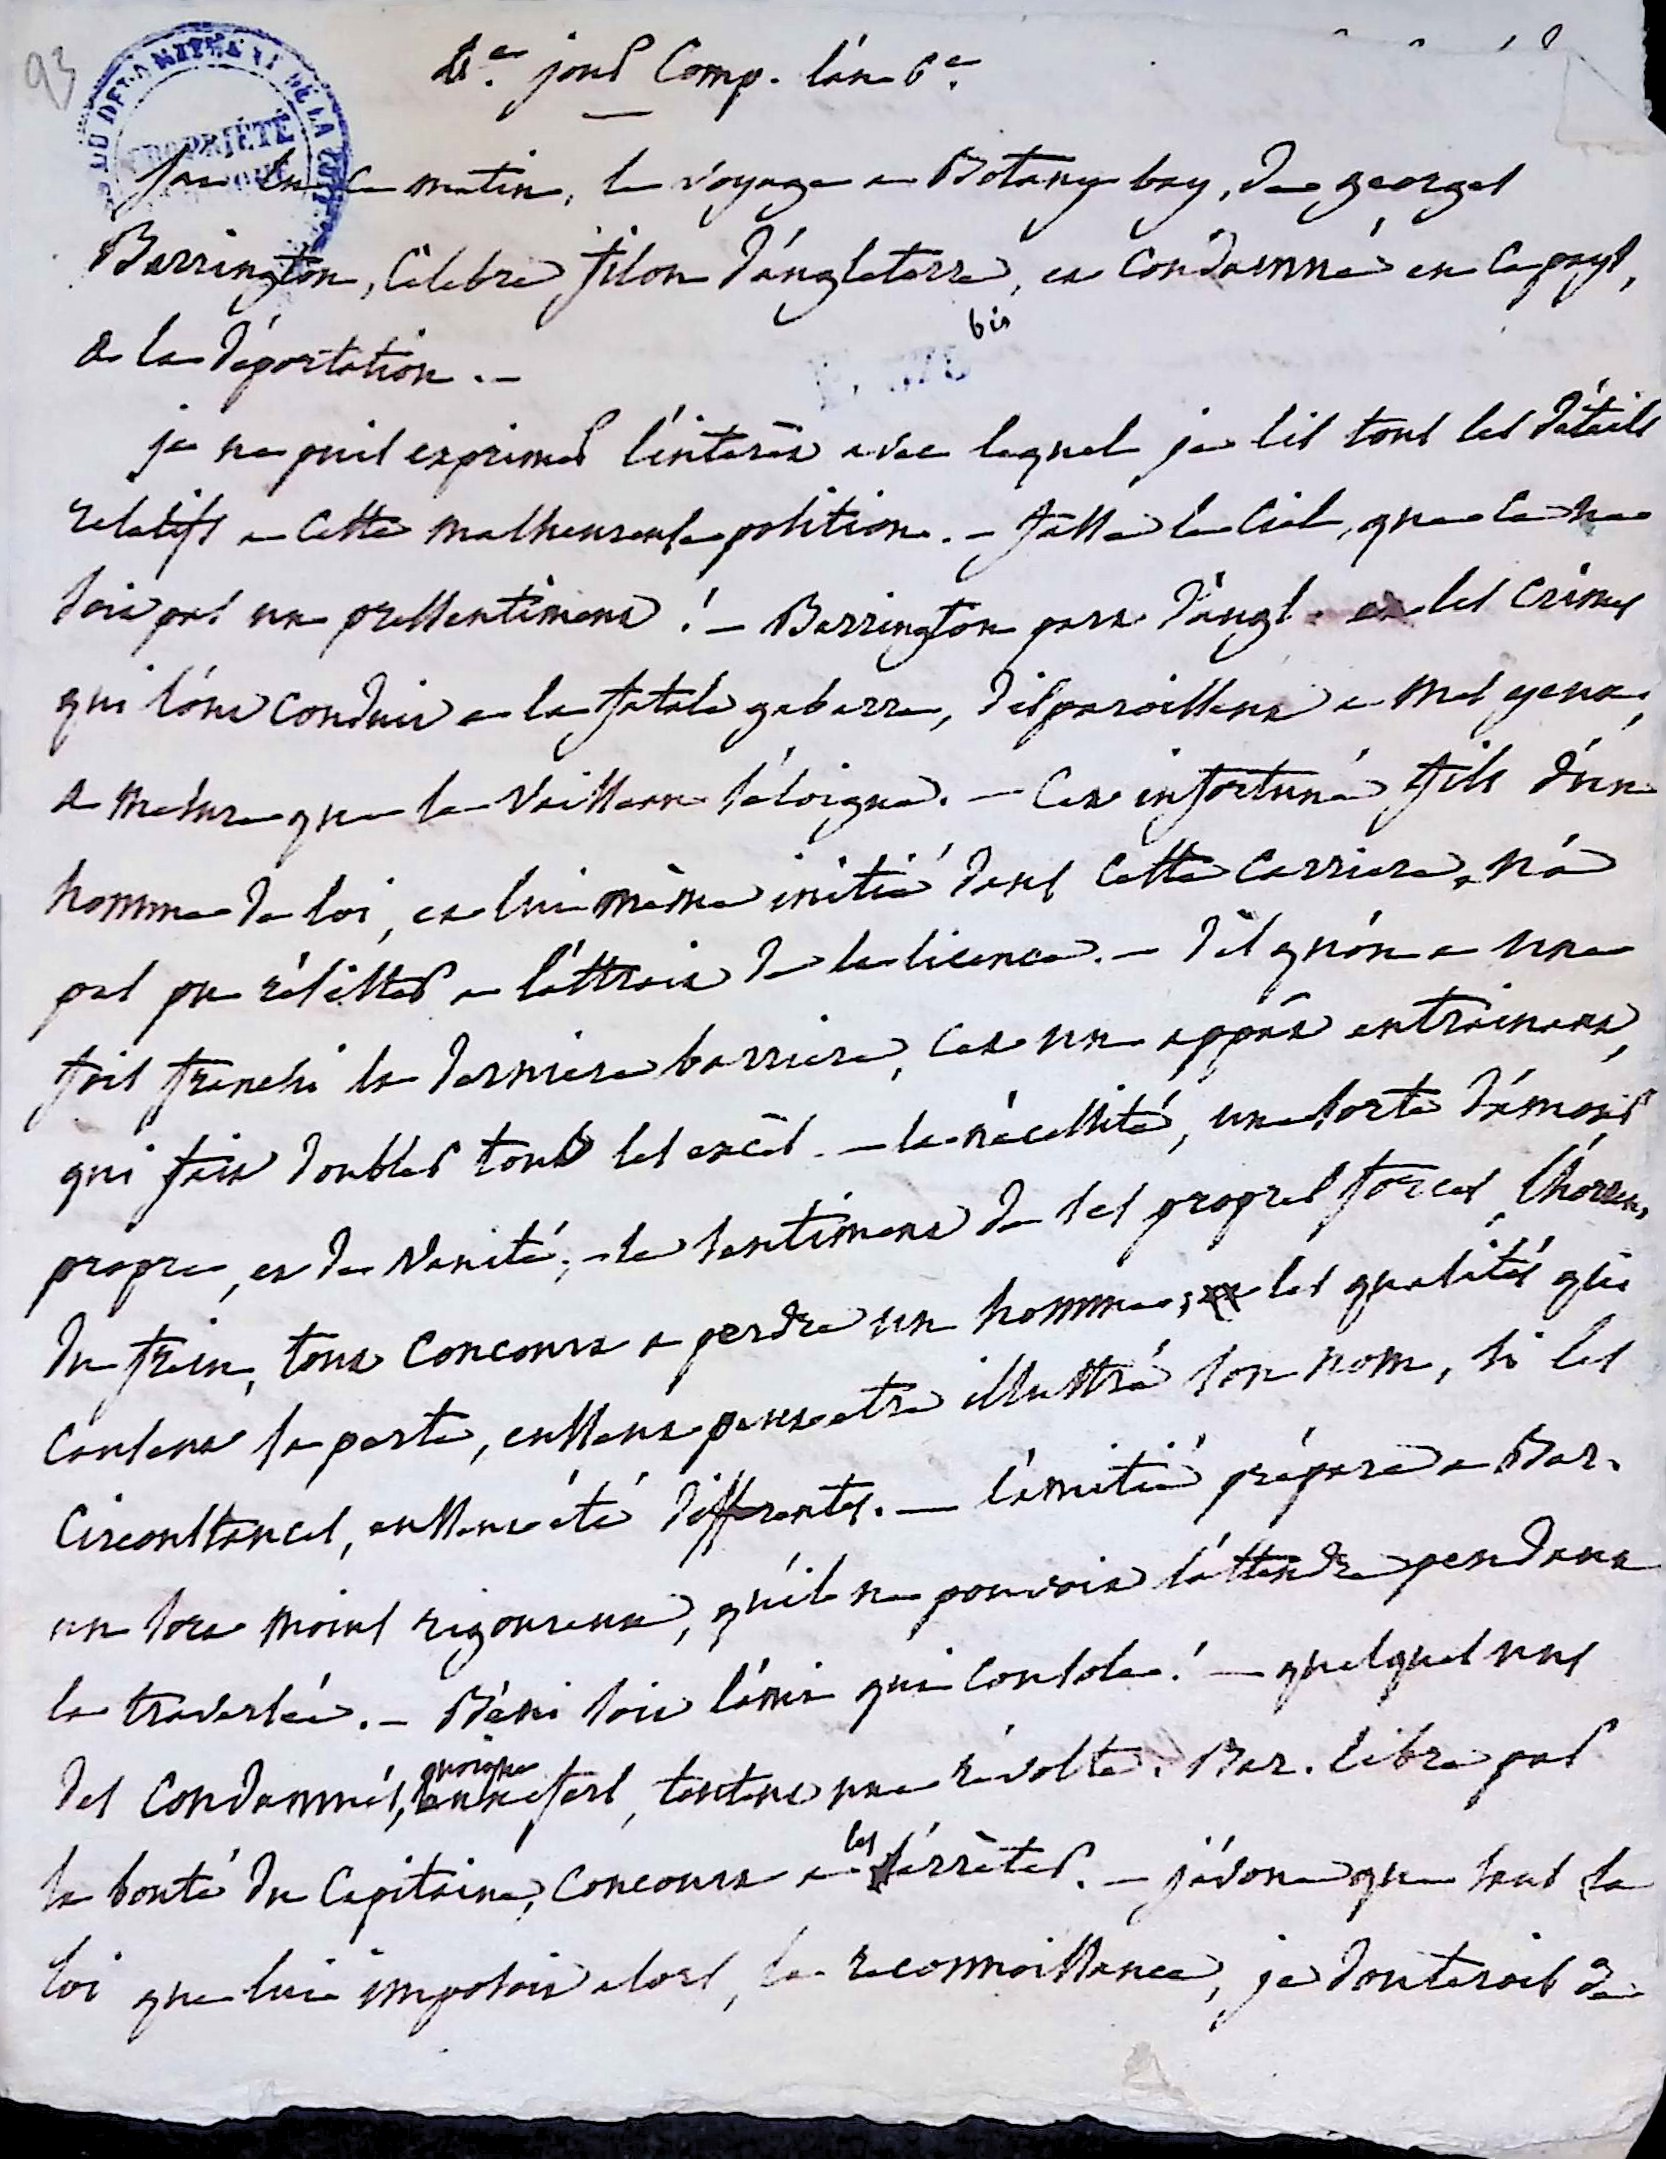 93
4e. jour Comp. l'an 6e.
J'ai lu ce matin, le voyage a Botany bay, de georges
Barrington, célebre filou d'angleterre, et condamné en ce pays,
a la déportation. -
bis
je ne puis exprimer l'intérêt avec lequel je lis tous les détails
relatifs a cette malheureuse position. - fasse le Ciel, que ce ne
soit pas un pressentiment ! - Barrington part d'angl. et les crimes
qui l'ont conduit a la fatale gabarre, disparoissent a mes yeux,
a mesure que le vaisseau s'éloigne. - Cet infortuné fils d'un
homme de loi, et lui même initié dans cette carriere, n'a
pas pu résister a l'attrait de la licence. - dès qu'on a une
fois franchi la derniere barriere, c'est un appât entrainant,
qui fait doubler tous les excès. - la nécessité, une sorte d'amour
propre, et de vanité, - le sentiment de ses propres forces, l'horreur
du frein, tout concourt a perdre un homme, les qualités qui
causent sa perte, eussent peut etre illustré son nom, si les
circonstances, eussent été différentes. - l'amitié prépara a Bar.
un sort moins rigoureux, qu'il ne pouvoit l'attendre pendant
la traversée. - Béni soit l'ami qui console ! - quelques uns
des condamnés, quoique aux fers, tentent une révolte. Bar. libre par
la bonté du Capitaine, concourt a les arrêter. - j'avoue que sans la
loi que lui imposoit alors, la reconnoissance, je douterois de